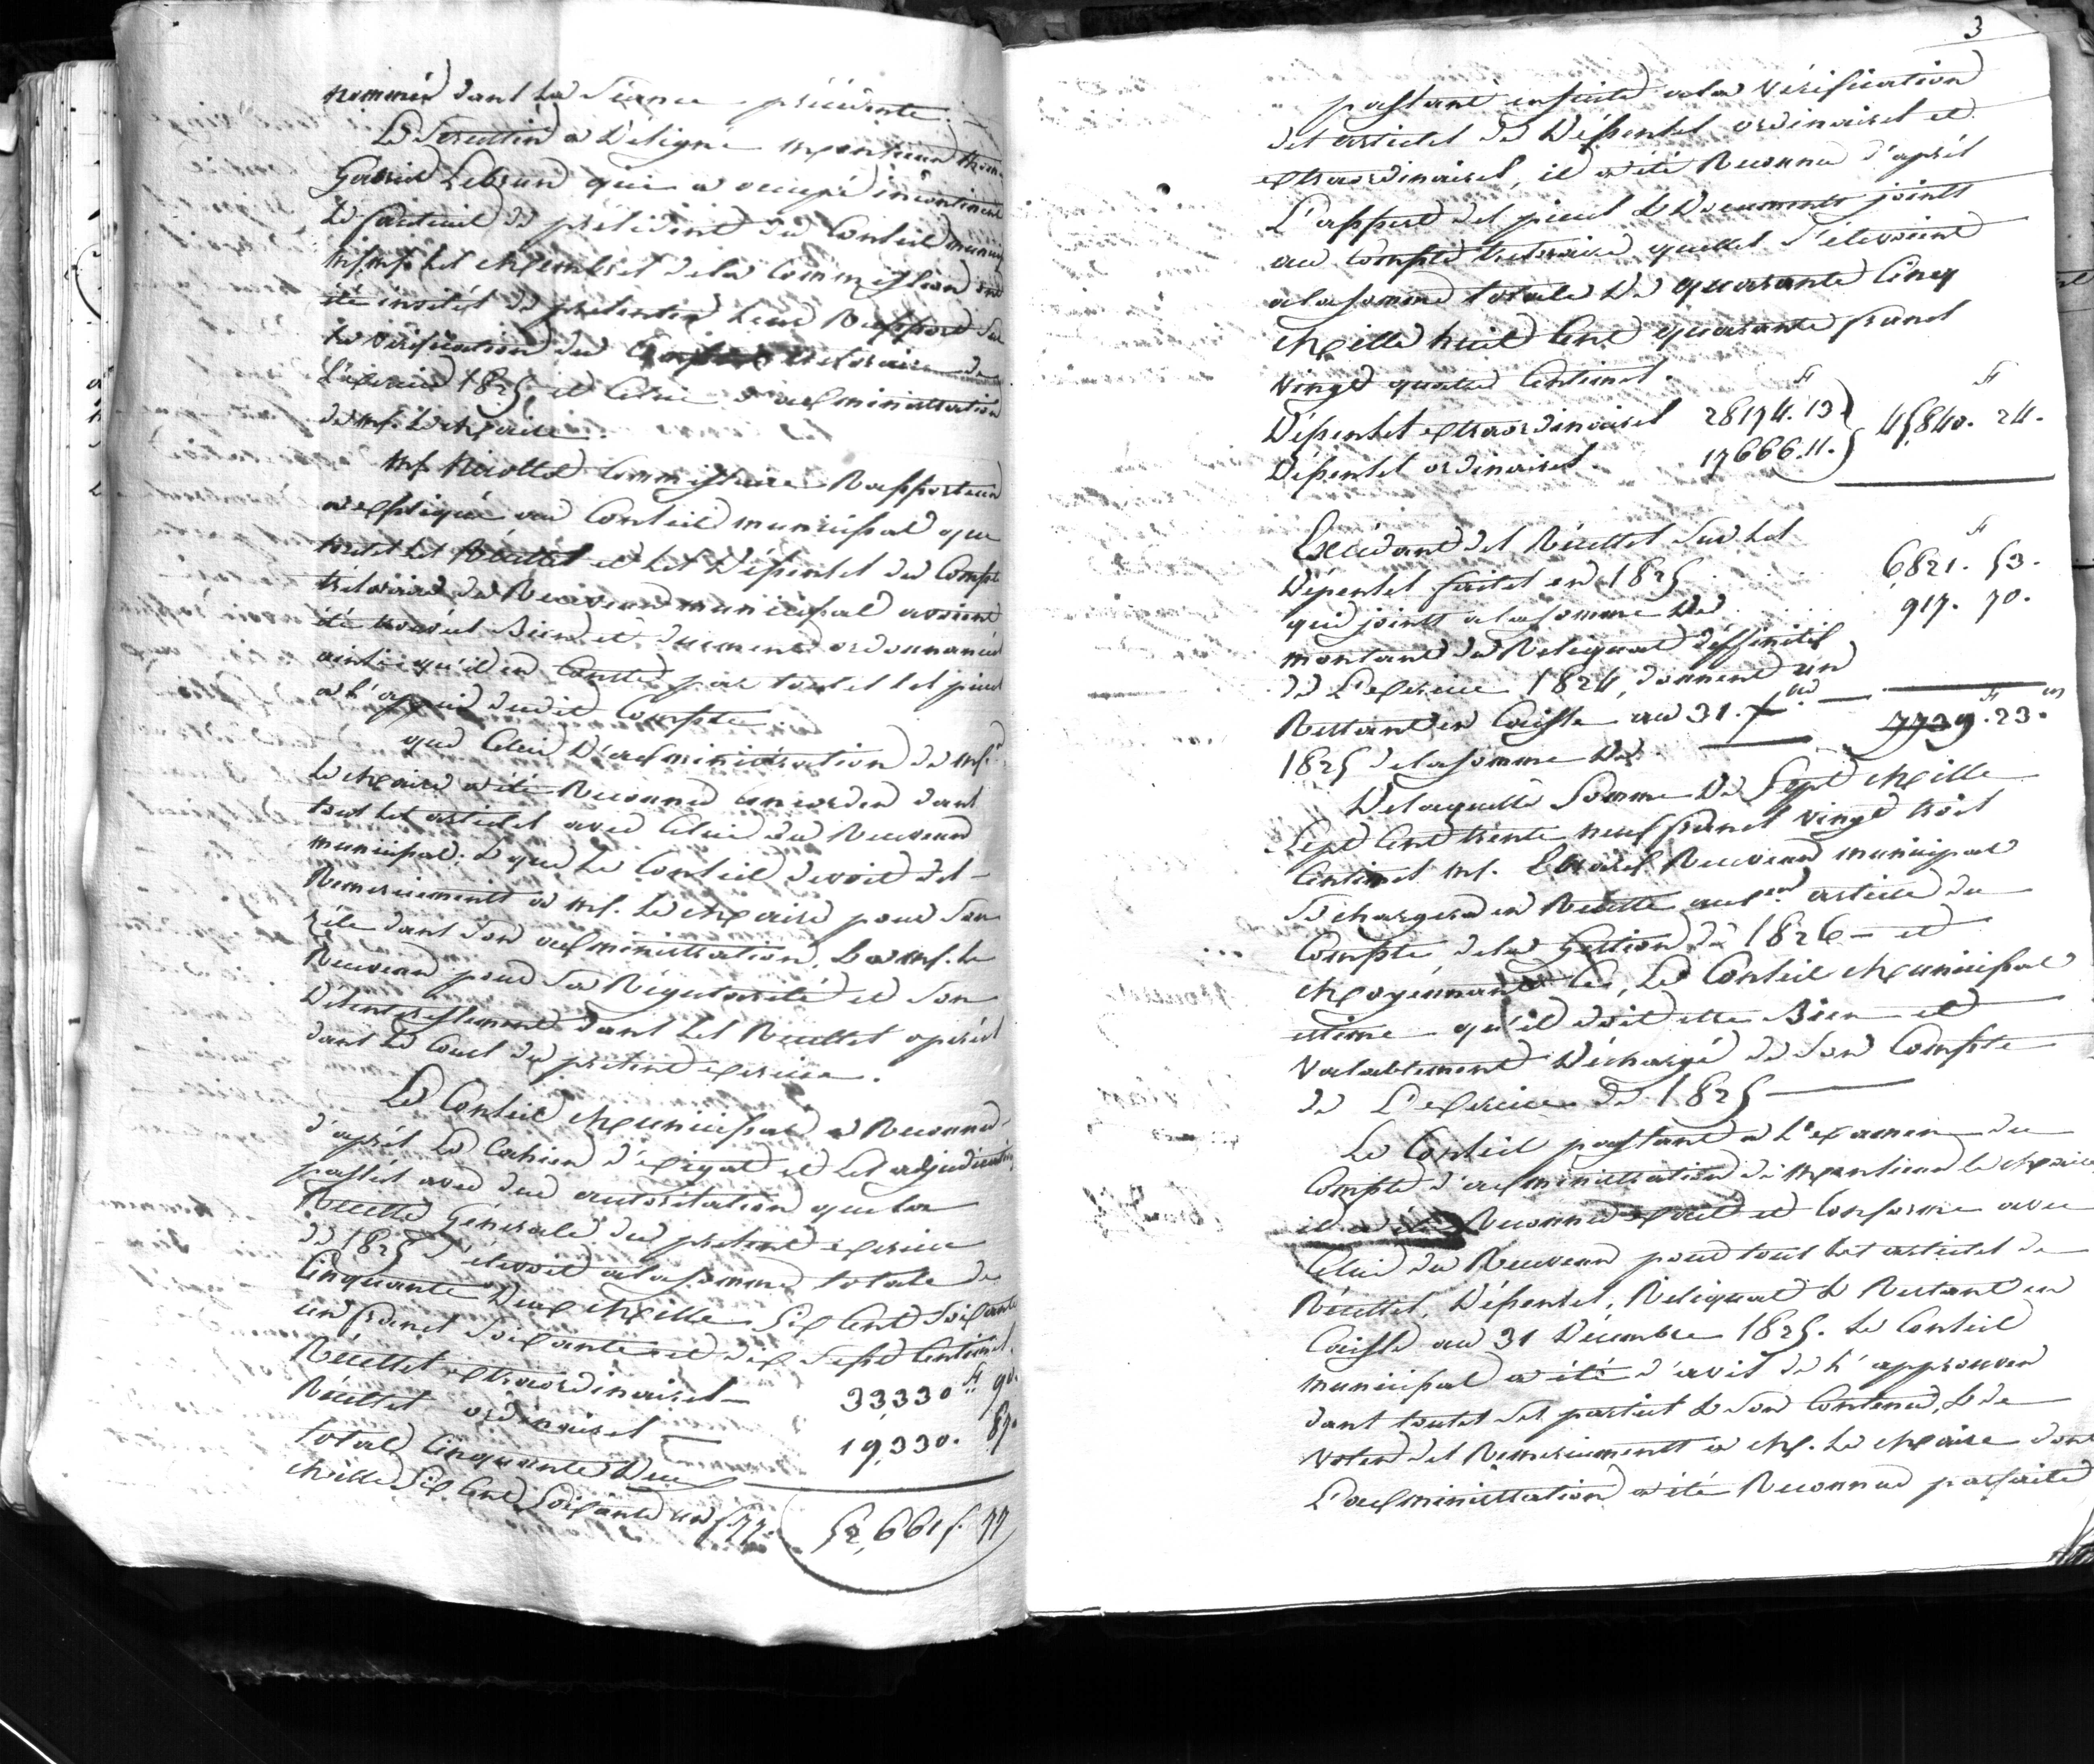 nommés dans la Séance précédente.
Le Scrutin a Désigné Monsieur Thom
Gabriel Lebrun qui a occupé incontinent
Le fauteuil de président du Conseil munici
MM. les Membres de la Commission ont
été invités de présenter leur Rapport sur
la vérification du Compte trésoraire de
L'exercice 1825, et Celui d'administration
de M. Le Maire.
M. Commissaire Rapporteur
a expliqué au Conseil municipal que
toutes les Récettes et les Dépenses du Compte
trésoraire du Receveur municipal avoient
été trouvés Bien et duement ordonnancés
ainsi qu'il en Conste par toutes les pieces
a l'appui dudit Compte.
que Celui D'administration de M.
Le Maire a été Reconnu Concorder dans
tous les articles avec Celui du Receveur
municipal; & que Le Conseil devoit des
Remerciements a M. Le Maire pour Son
zéle dans Son administration, & a M. Le
Receveur pour Sa Régularité et Son
Désinteressement dans les Recettes opérées
dans Le Cours du présent exercice.
Le Conseil Municipal a Reconnu
d'après Le Cahier d'exigat et Les adjudications
passées avec due autorisation que La
Recette Générale du présent exercice
de 1825 s'élevoit a la somme totale de
Cinquante Deux Mille Six Cent Soixante
un francs Soixante et dix Sept Centimes.
Récettes extraordinaires 33,330ff 90.
Récettes ordinaires 19,330. 87.
total Cinquante Deux
Mille Six Cent Soixante un f 77. 52,661f. 77
3
passant ensuite a la vérification
des articles de Dépenses ordinaires et
extraordinaires, il a été Reconnu d'après
L'appui des pieces & Documents joints
au Compte trésoraire, quelles s'élevoient
a la somme totale De quarante Cinq
Mille huit Cent quarante francs
vingt quatre Centimes.
Dépenses extraordinaires 28174. 13. 45,840. 24.
Dépenses ordinaires. 17666. 11.
Excédant des Récettes Sur les
Dépenses faites en 1825 6821. 53.
qui joints a la somme De 917. 70.
montant du Reliquat déffinitif
de L'exercice 1824, donnent un
Restant en Caisse au 31. Xbre 7739. 23.
1825 de la somme De
De laquelle Somme De Sept Mille
Sept Cent trente neuf francs vingt trois
Centimes M. Receveur municipal
Se chargera en Recette au 1er article du
Compte de la Gestion de 1826 - et
Moyennant Ce, Le Conseil Municipal
estime qu'il doit être Bien et
valablement Déchargé de Son Compte
de L'exercice de 1825
Le Conseil passant a L'examen du
Compte d'administration de Monsieur Le Maire
il a été Reconnu exact et Conforme avec
Celui du Receveur pour tous les articles de
Récettes, Dépenses, Réliquat & Restant en
Caisse au 31 Décembre 1825. Le Conseil
municipal a été d'avis de L'approuver
dans toutes Ses parties & Son Contenu, & de
voter des Remerciements a M. Le Maire dont
L'administration a été Reconnue parfaite